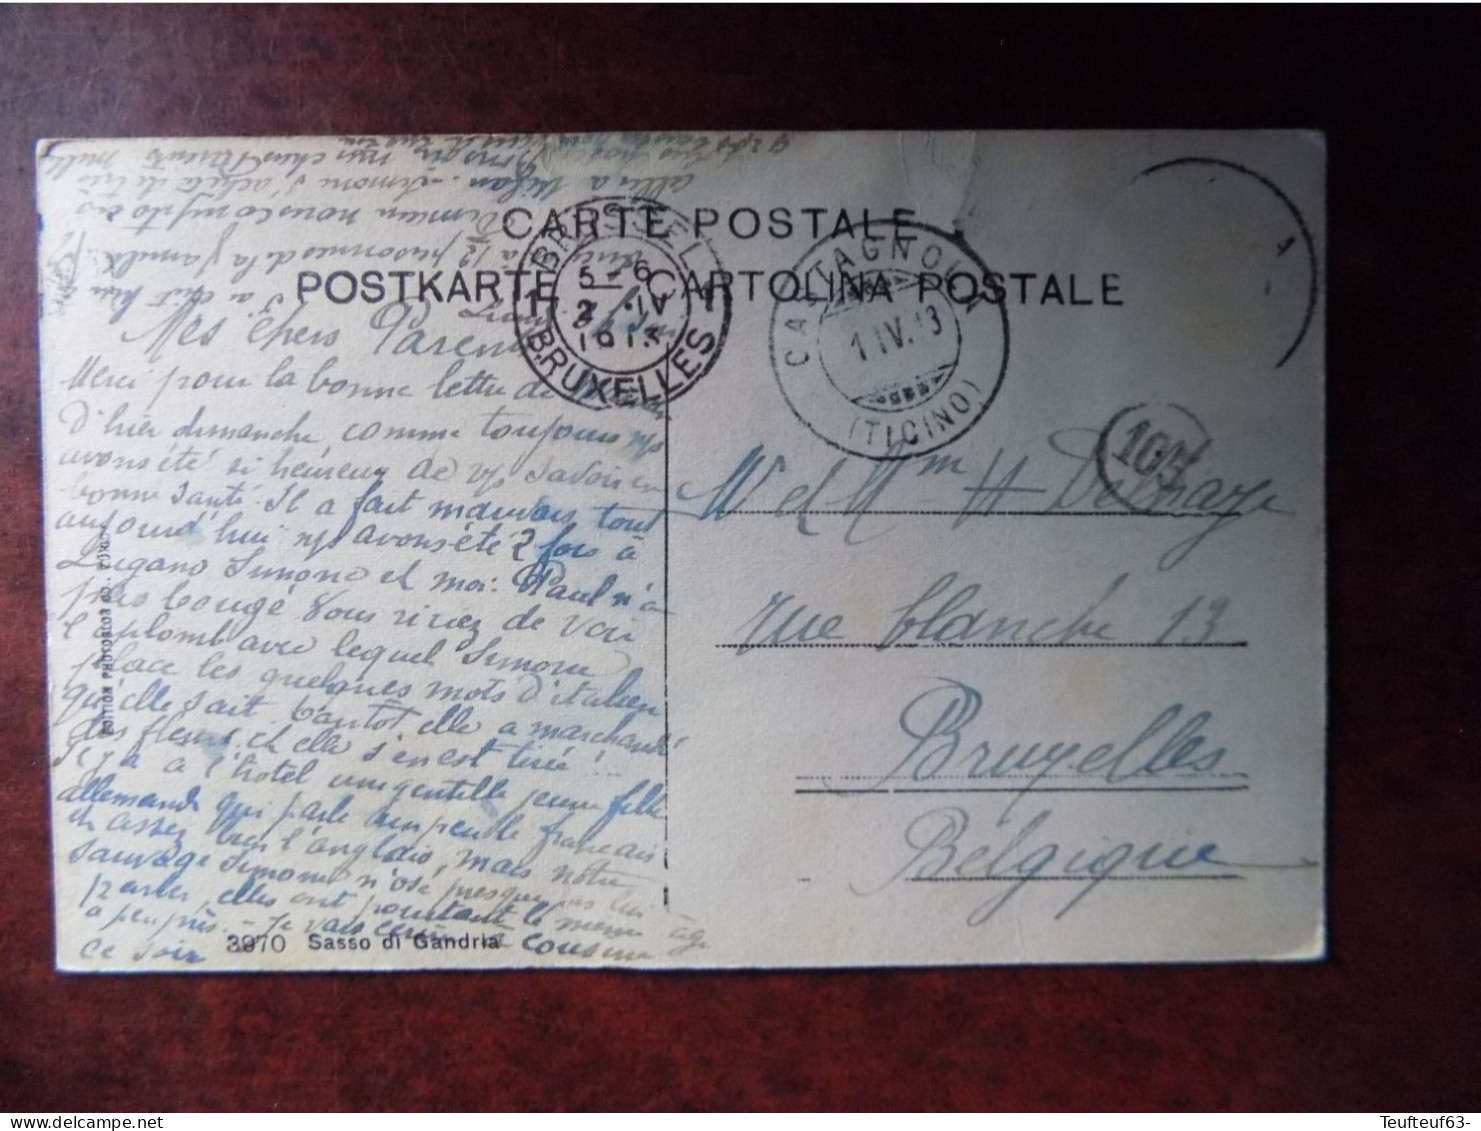 CARTE POSTALE
POSTKARTE CARTOLINA POSTALE
BRUSSEL
5-6
2 IV
1913
BRUXELLES
CASTAGNOLA
1.IV.13
(TICINO)
103
Mes chers Parents
Merci pour la bonne lettre de
d'hier dimanche comme toujours ns
avons été si heureux de vs savoir en
bonne santé. Il a fait mauvais tout
aujourd'hui ns avons été 2 fois à
Lugano Simone et moi. Paul n'a
pas bougé Vous ririez de voir
l'aplomb avec lequel Simone
place les quelques mots d'italien
qu'elle sait. Tantôt elle a marchandé
des fleurs, et elle s'en est tirée ...
Il y a à l'hôtel une gentille jeune fille
allemande qui parle un peu le français
et assez bien l'anglais, mais notre
sauvage Simone n'ose presque pas lui
parler, elles ont pourtant le même âge
à peu près. - Je vais écrire à cousine
ce soir
Demain nous comptons
aller à Milan. Simone s'acheté de très
mes chers Parents mille
à 12 personnes de la famille
M et Mme H Delhaye
rue blanche 13
Bruxelles
Belgique
3970 Sasso di Gandria
EDITION PHOTOGLOB CO., ZÜRICH
Teufteuf63-